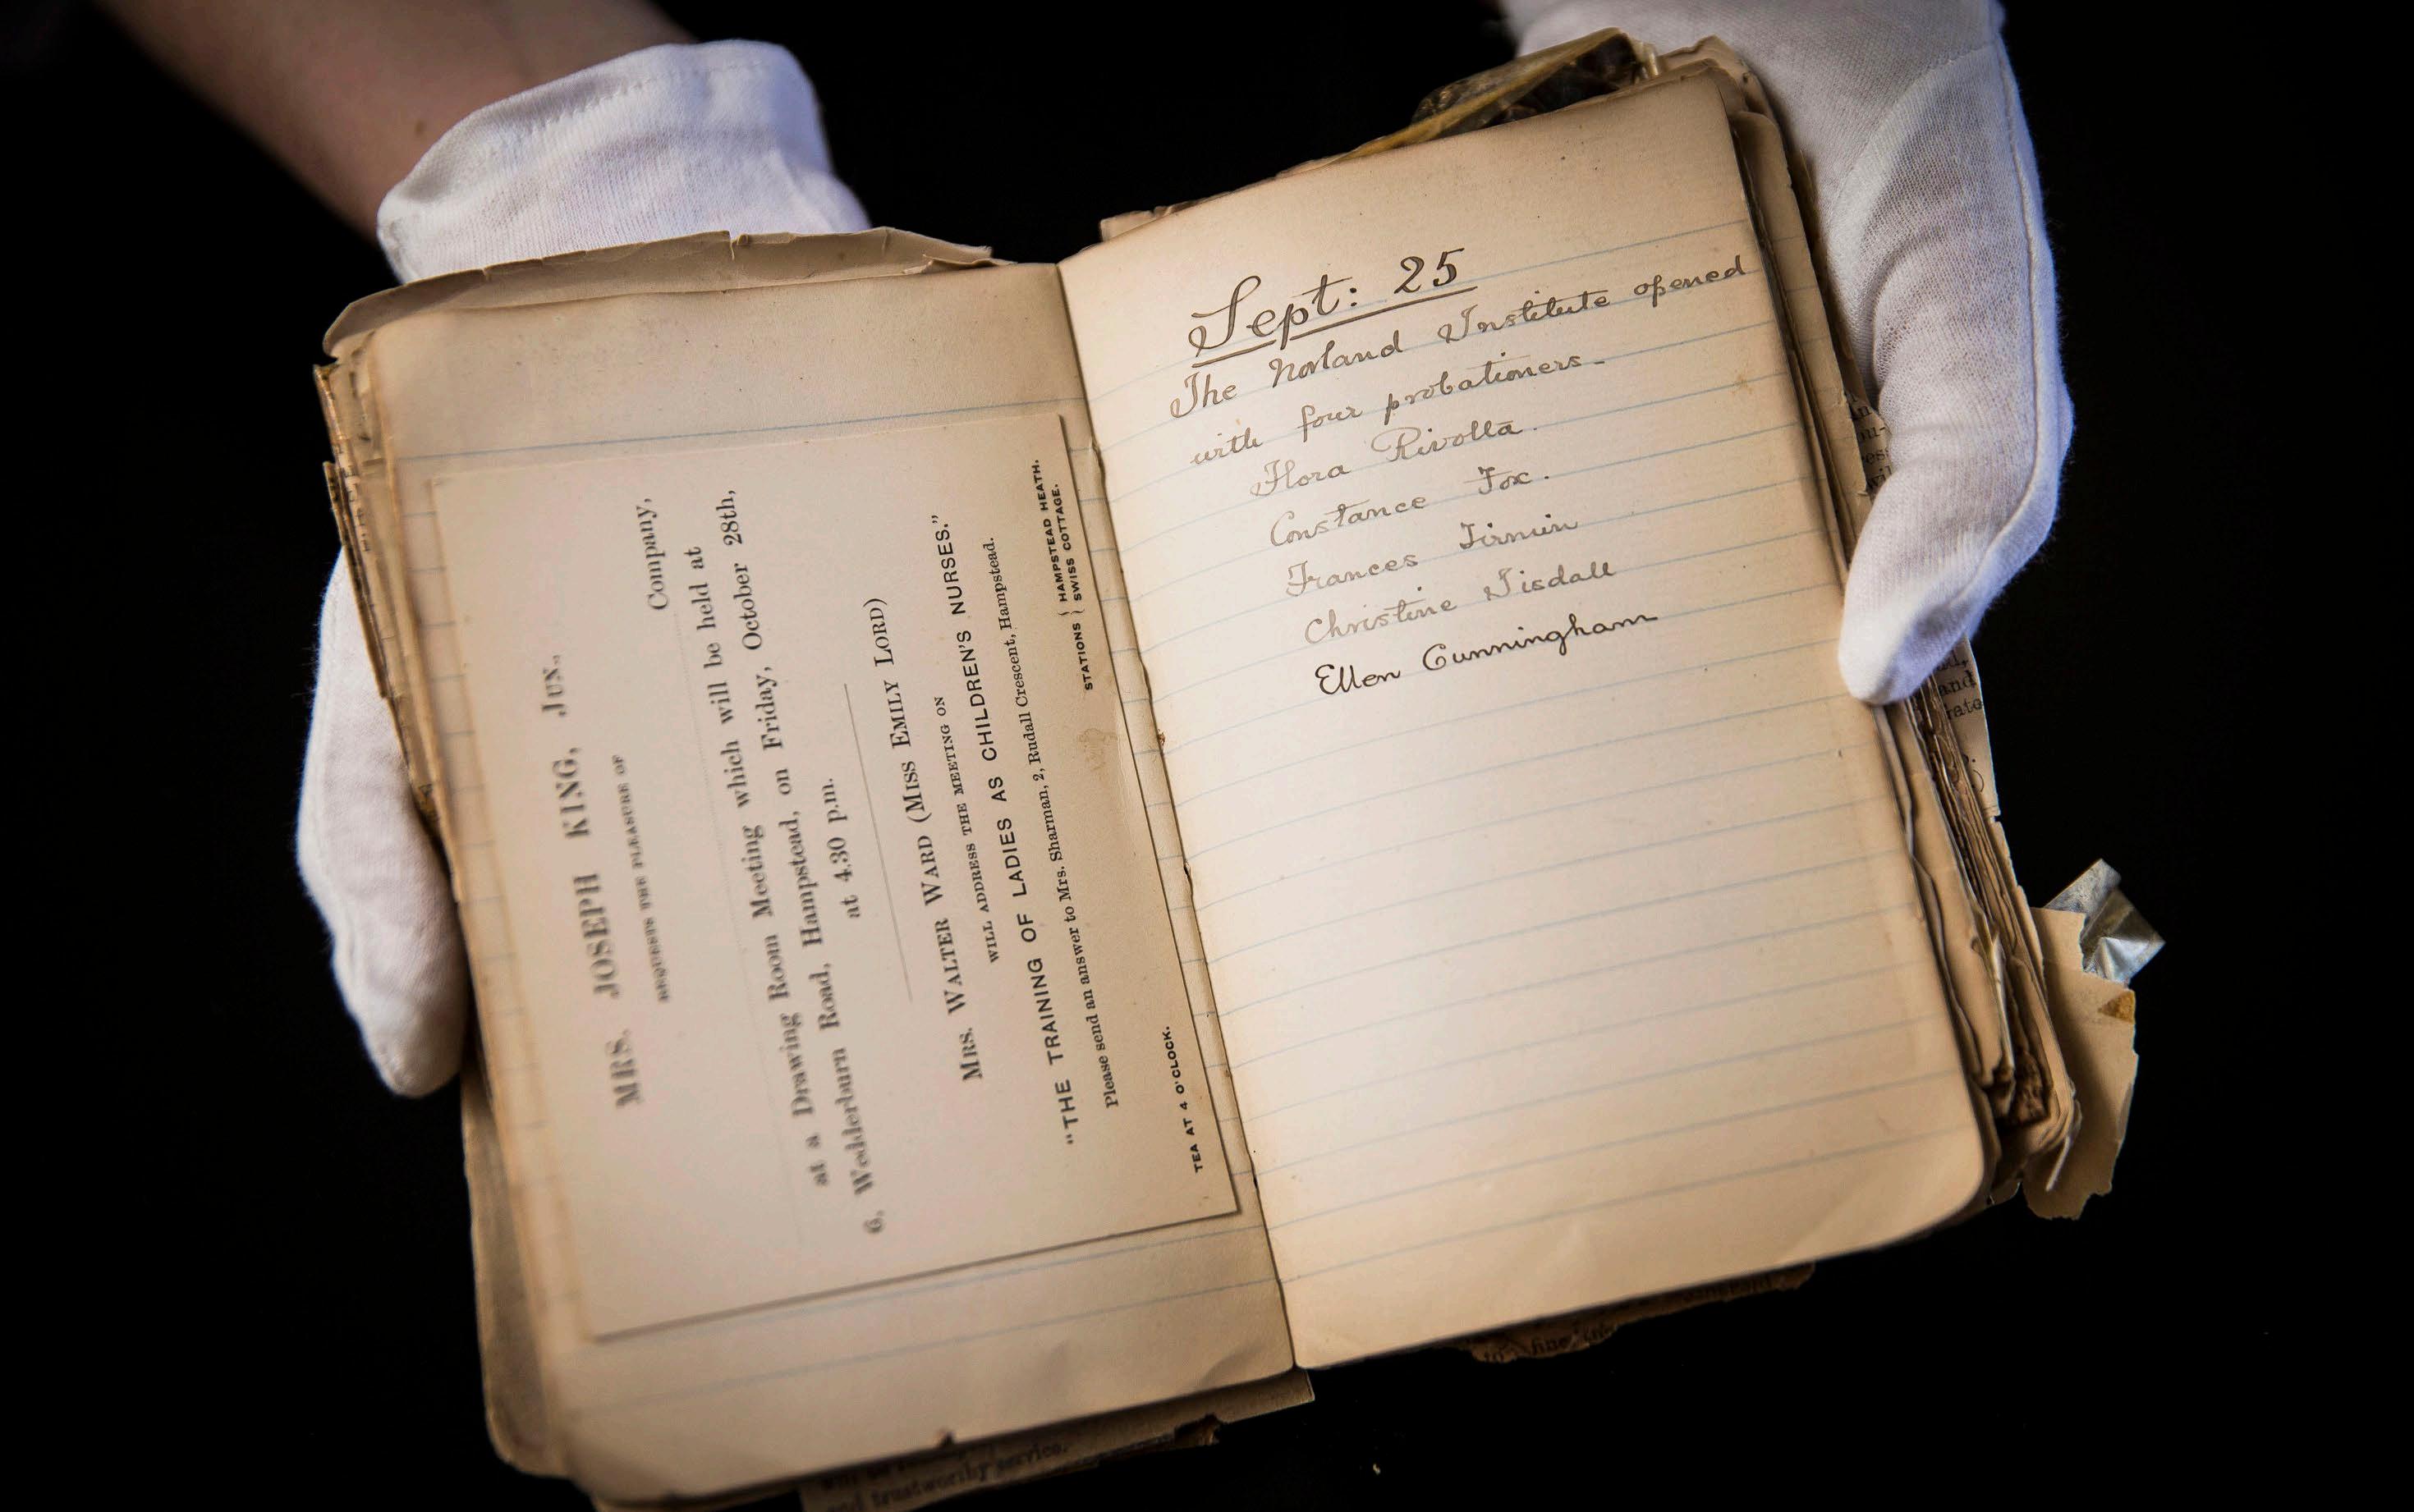 MRS. JOSEPH KING, JUN.,
REQUESTS THE PLEASURE OF
Company,
at a Drawing Room Meeting which will be held at
6, Wedderburn Road, Hampstead, on Friday, October 28th,
at 4.30 p.m.
MRS. WALTER WARD (MISS EMILY LORD)
WILL ADDRESS THE MEETING ON
"THE TRAINING OF LADIES AS CHILDREN'S NURSES."
Please send an answer to Mrs. Sharman, 2, Rudall Crescent, Hampstead.
TEA AT 4 O'CLOCK.
STATIONS { HAMPSTEAD HEATH.
SWISS COTTAGE.
Sept: 25
The Norland Institute opened
with four probationers -
Flora Rivolla.
Constance Fox.
Frances Firmin
Christine Tisdall
Ellen Cunningham
and trustworthy service.